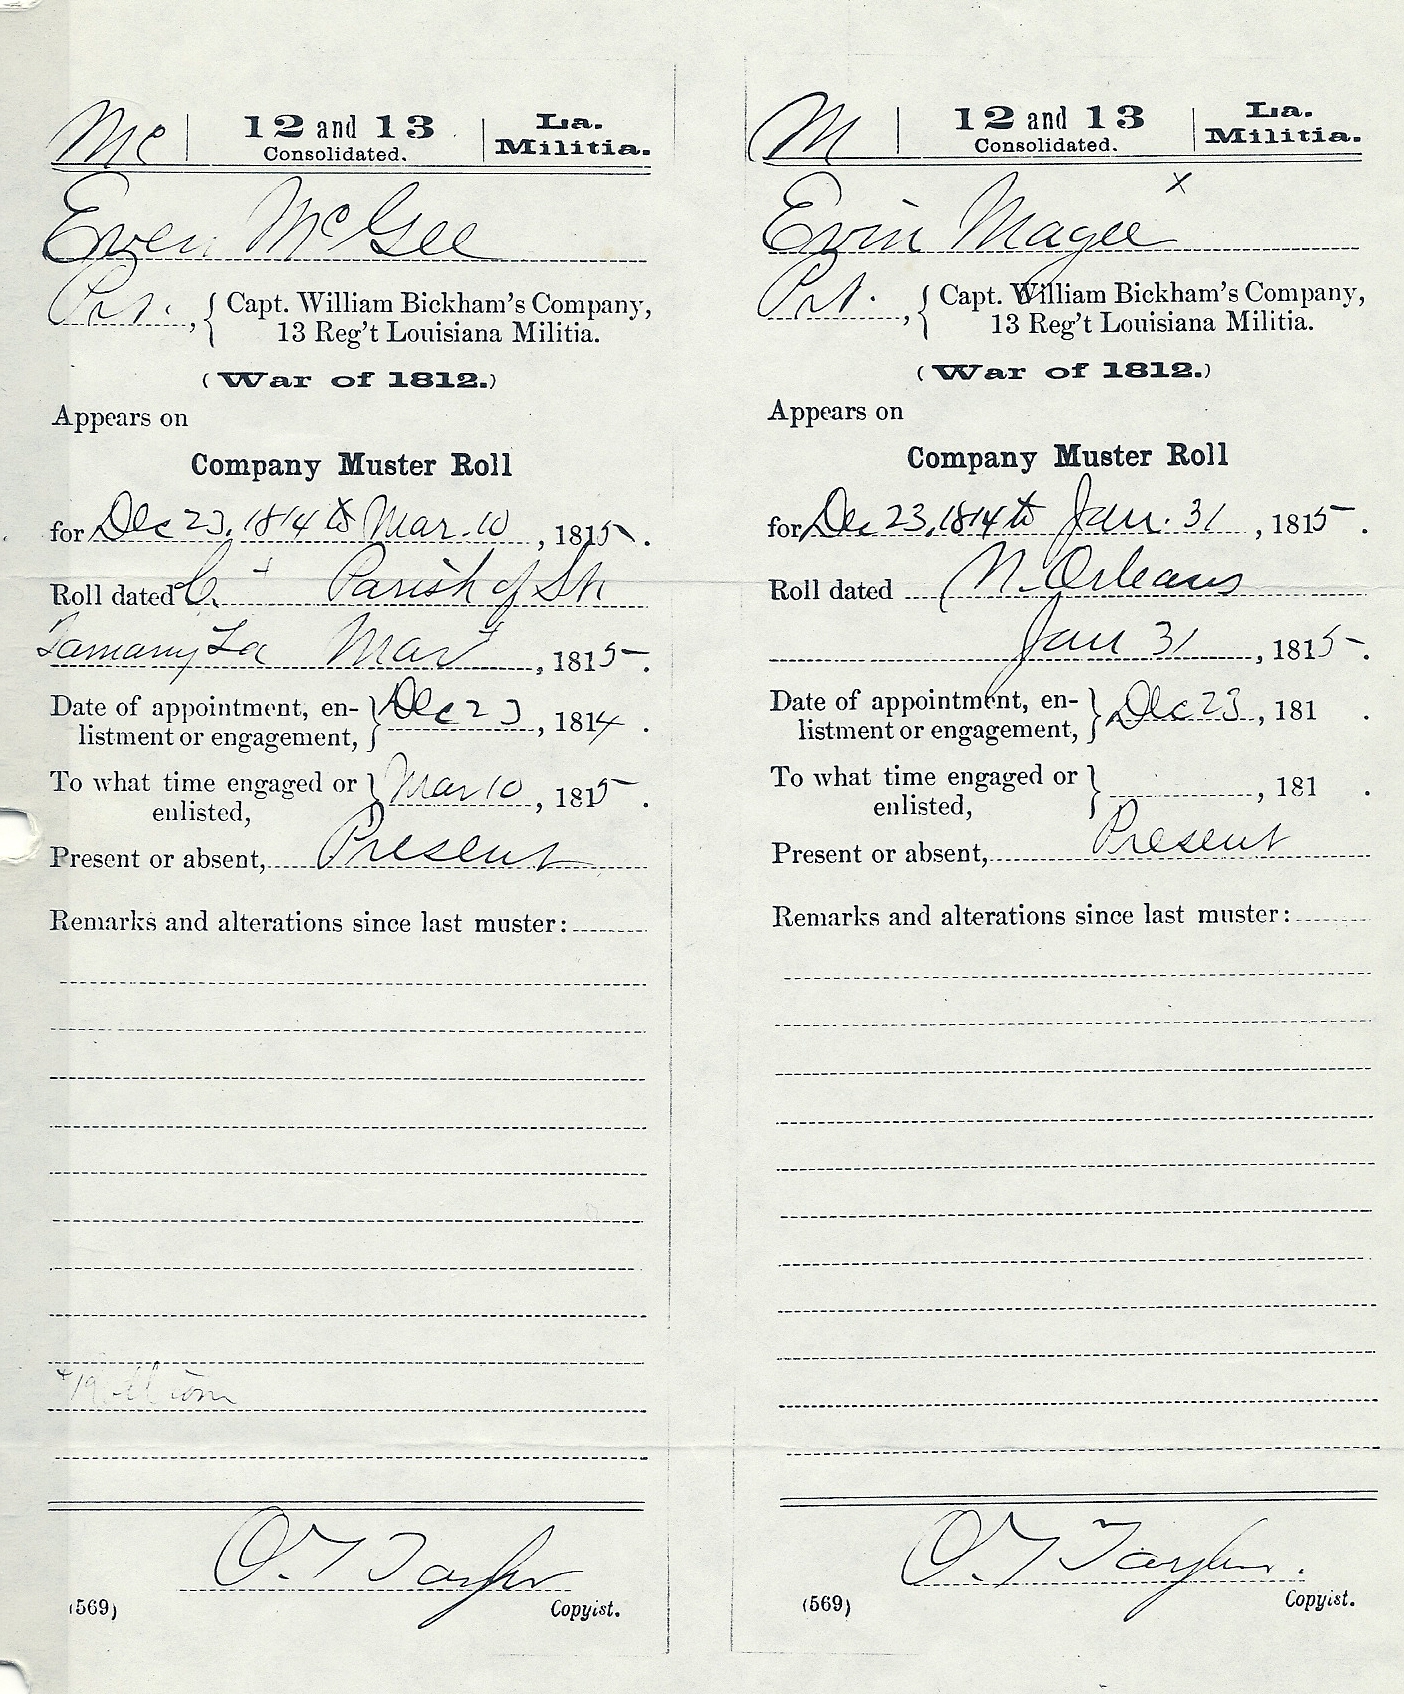 Mc | 12 and 13 | La.
Consolidated. Militia.
Ewen McGee
Pvt., { Capt. William Bickham's Company,
13 Reg't Louisiana Militia.
(War of 1812.)
Appears on
Company Muster Roll
for Dec 23, 1814 to Mar. 10, 1815.
Roll dated Parish of St.
Tamany La Mar, 1815.
Date of appointment, en- } Dec 23, 1814.
listment or engagement,
To what time engaged or } Mar 10, 1815.
enlisted,
Present or absent, Present
Remarks and alterations since last muster:
O. T. Taylor
(569) Copyist.
M | 12 and 13 | La.
Consolidated. Militia.
x
Ervin Magee
Pvt., { Capt. William Bickham's Company,
13 Reg't Louisiana Militia.
(War of 1812.)
Appears on
Company Muster Roll
for Dec 23, 1814 to Jan. 31, 1815.
Roll dated N. Orleans
Jan 31, 1815.
Date of appointment, en- } Dec 23, 181 .
listment or engagement,
To what time engaged or } , 181 .
enlisted,
Present or absent, Present
Remarks and alterations since last muster:
O. T. Taylor.
(569) Copyist.